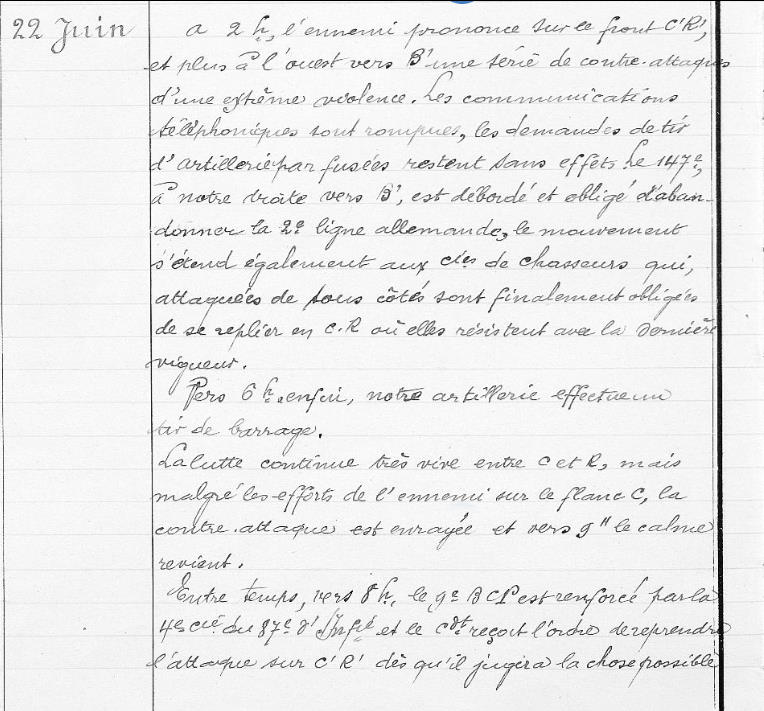 22 Juin
a 2 h, l'ennemi prononce sur le front C'R',
et plus à l'ouest vers B' une série de contre-attaques
d'une extrême violence. Les communications
téléphoniques sont rompues, les demandes de tir
d'artillerie par fusées restent sans effets. Le 147e,
à notre droite vers B', est débordé et obligé d'aban-
donner la 2e ligne allemande, le mouvement
s'étend également aux cies de chasseurs qui,
attaquées de tous côtés sont finalement obligées
de se replier en C.R où elles résistent avec la dernière
vigueur.
Vers 6 h. enfin, notre artillerie effectue un
tir de barrage.
La lutte continue très vive entre C et R, mais
malgré les efforts de l'ennemi sur le flanc C, la
contre-attaque est enrayée et vers 9h le calme
revient.
Entre temps, vers 8 h, le 9e BCP est renforcé par la
4e Cie du 87e d'Infie et le Cdt reçoit l'ordre de reprendre
l'attaque sur C'R' dès qu'il jugera la chose possible